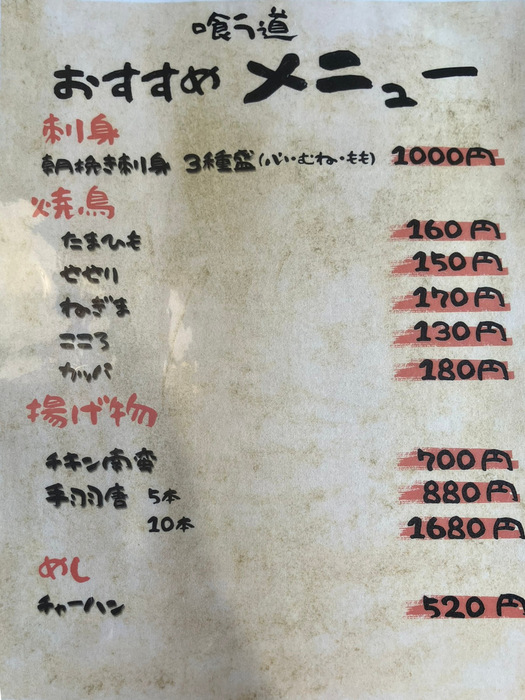 喰う道
おすすめ メニュー
刺身
朝挽き刺身 3種盛(ハツ・むね・もも) 1000円
焼鳥
たまひも 160円
せせり 150円
ねぎま 170円
こころ 130円
カッパ 180円
揚げ物
チキン南蛮 700円
手羽唐 5本 880円
10本 1680円
めし
チャーハン 520円